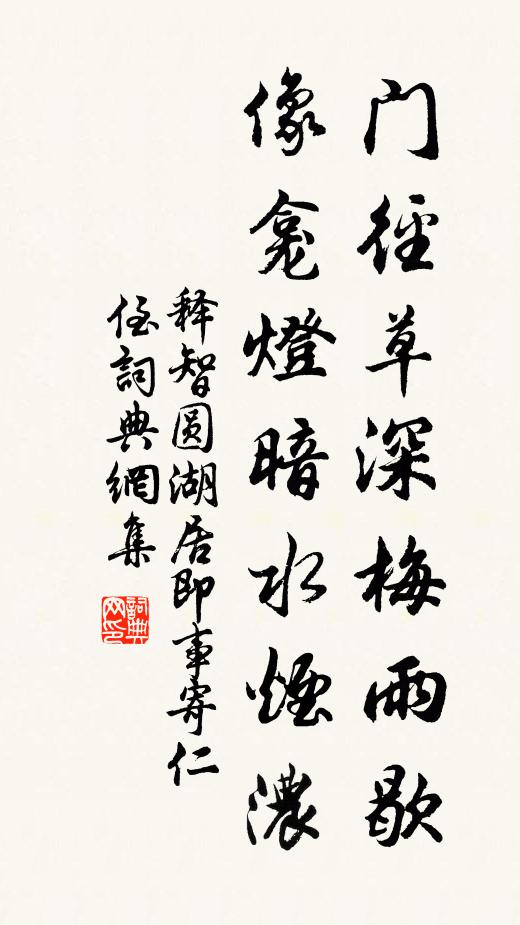 门徑草深梅雨歇
像龛燈暗水煙濃
释智圆湖居即事寄仁
侄詞典網集
詞典
网印